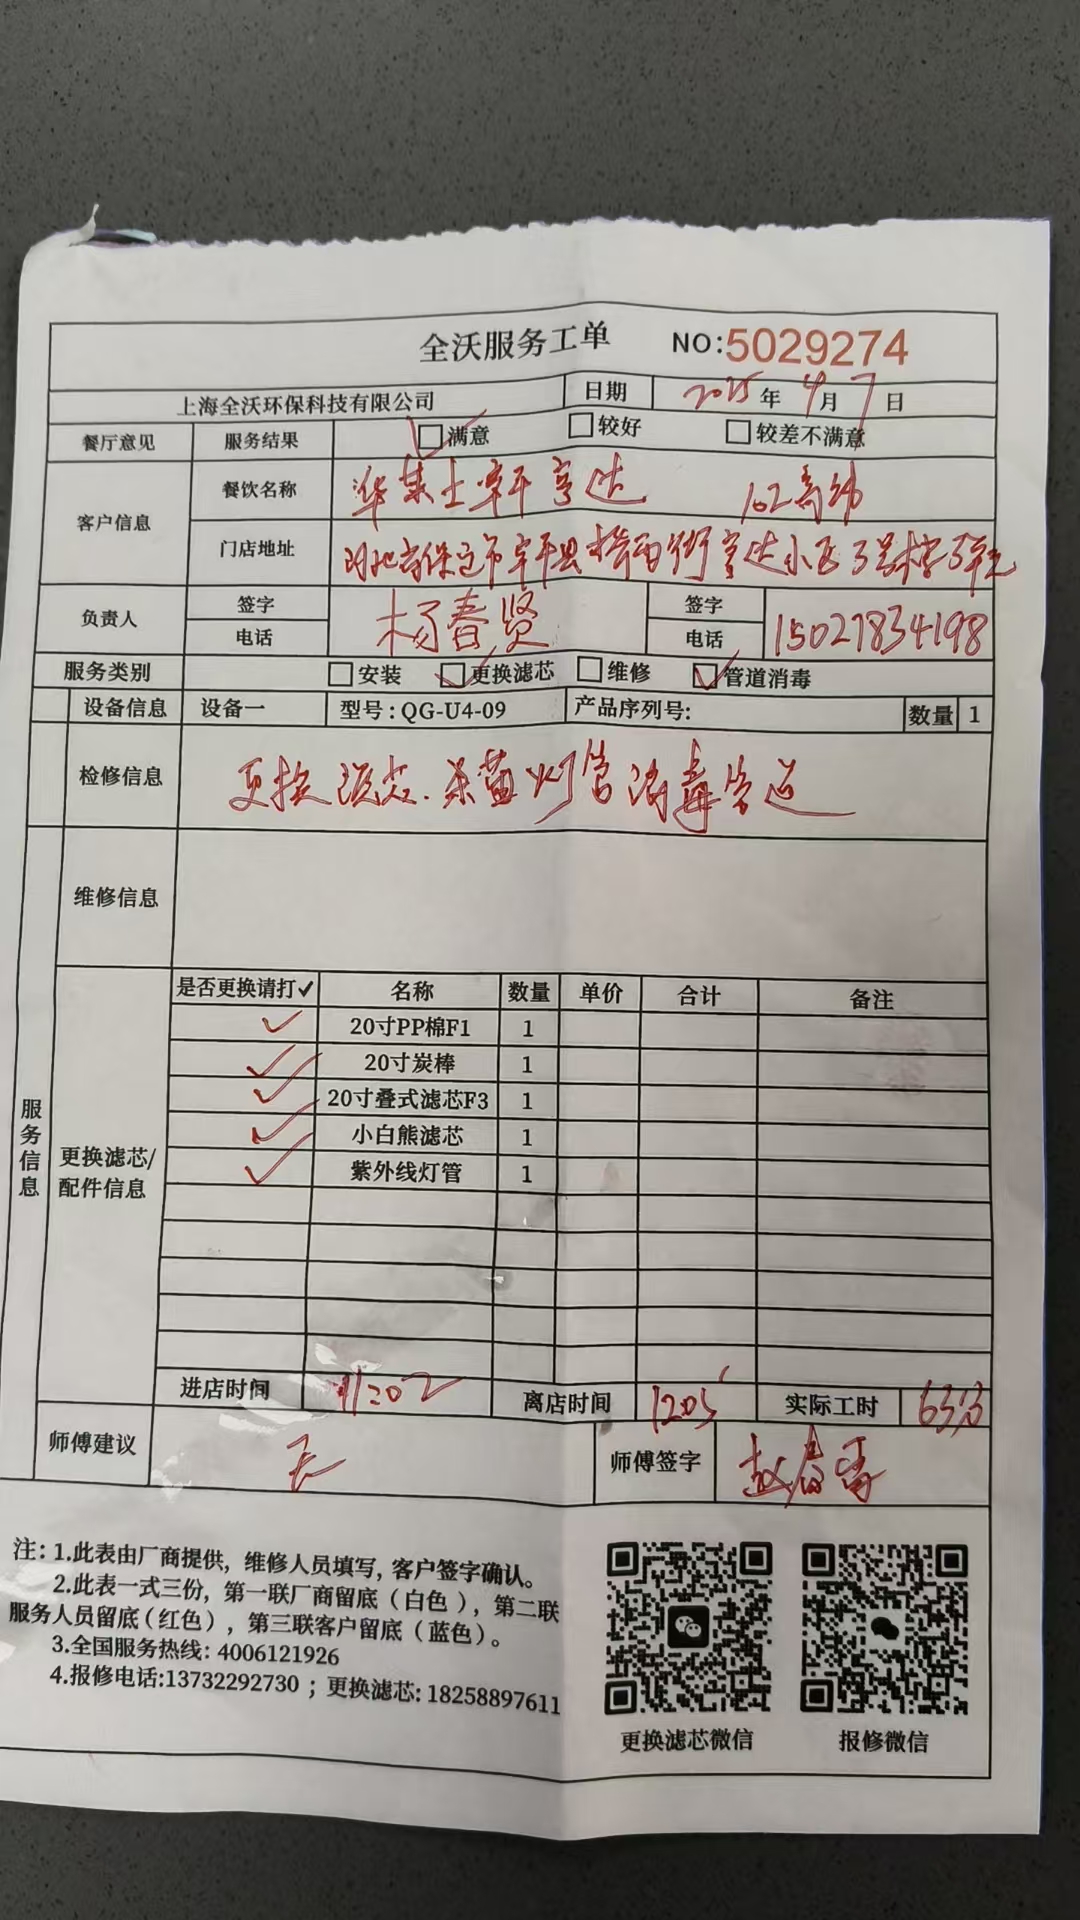 全沃服务工单 NO:5029274
上海全沃环保科技有限公司 日期 2025年4月7日
餐厅意见 服务结果 满意 较好 较差不满意
客户信息 餐饮名称 华莱士阜平亨达
门店地址 河北省保定市阜平县 街亨达小区3号楼3单元
负责人 签字 杨春贤 签字
电话 电话 15027834198
服务类别 安装 更换滤芯 维修 管道消毒
设备信息 设备一 型号:QG-U4-09 产品序列号: 数量 1
检修信息 更换滤芯.杀菌灯管消毒管道
维修信息
服务信息
更换滤芯/配件信息
是否更换请打✓ 名称 数量 单价 合计 备注
✓ 20寸PP棉F1 1
✓ 20寸炭棒 1
✓ 20寸叠式滤芯F3 1
✓ 小白熊滤芯 1
✓ 紫外线灯管 1
进店时间 11:02 离店时间 1205 实际工时 63分
师傅建议 无 师傅签字
注:1.此表由厂商提供,维修人员填写,客户签字确认。
2.此表一式三份,第一联厂商留底(白色),第二联
服务人员留底(红色),第三联客户留底(蓝色)。
3.全国服务热线:4006121926
4.报修电话:13732292730;更换滤芯:18258897611
更换滤芯微信 报修微信